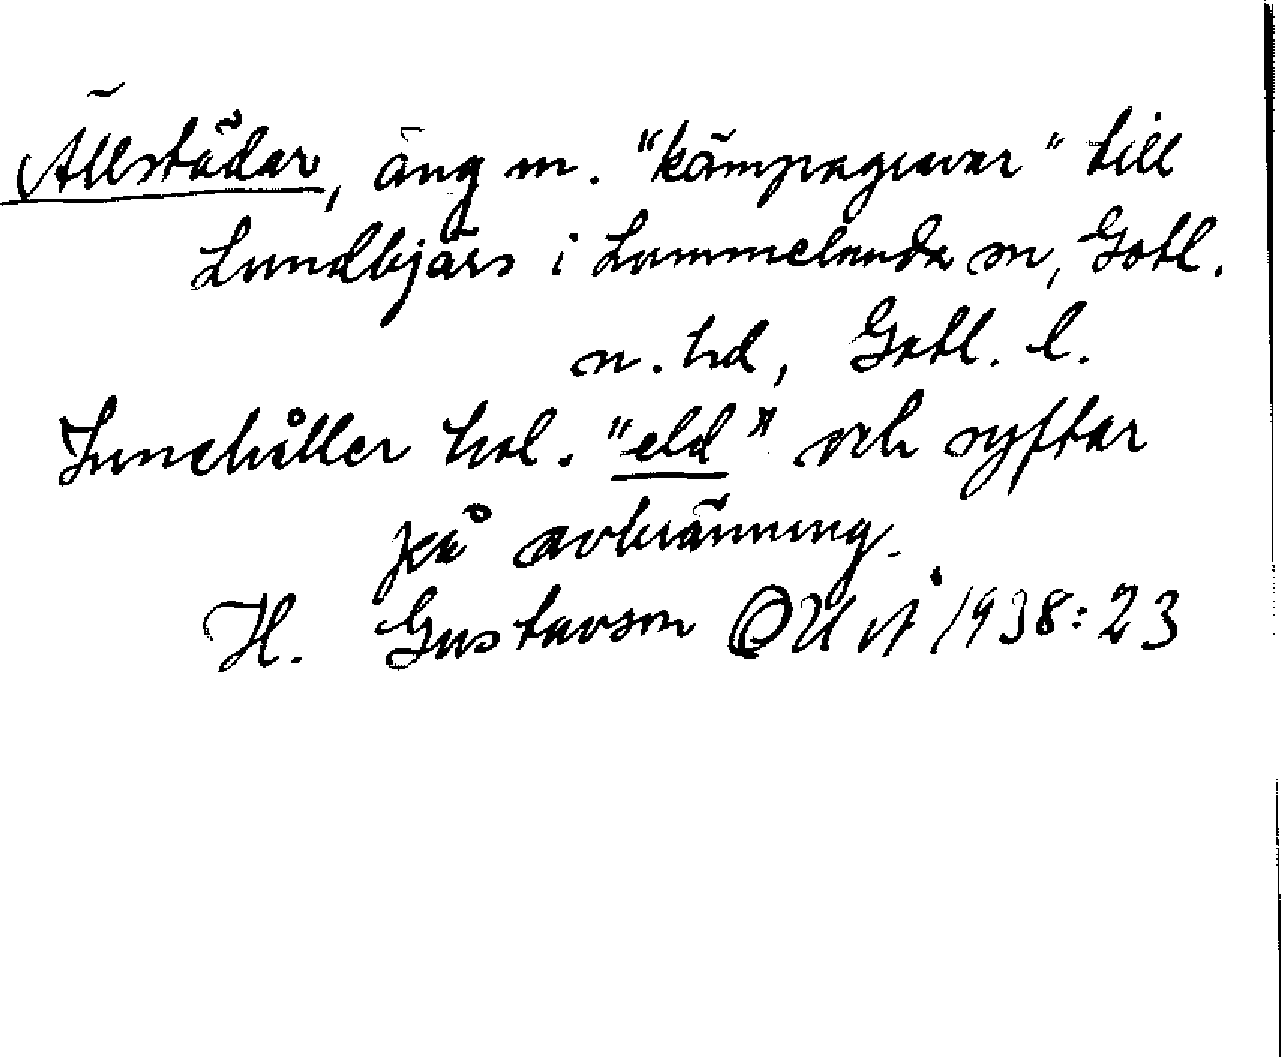 Ällstädar, äng m. "kämpagravar" till
Lundbjärs i Lummelunda sn, Gotl.
n. hd, Gotl. l.
Innehåller hol. "eld" och syftar
på avbränning.
H. Gustavson OUÅ 1938:23